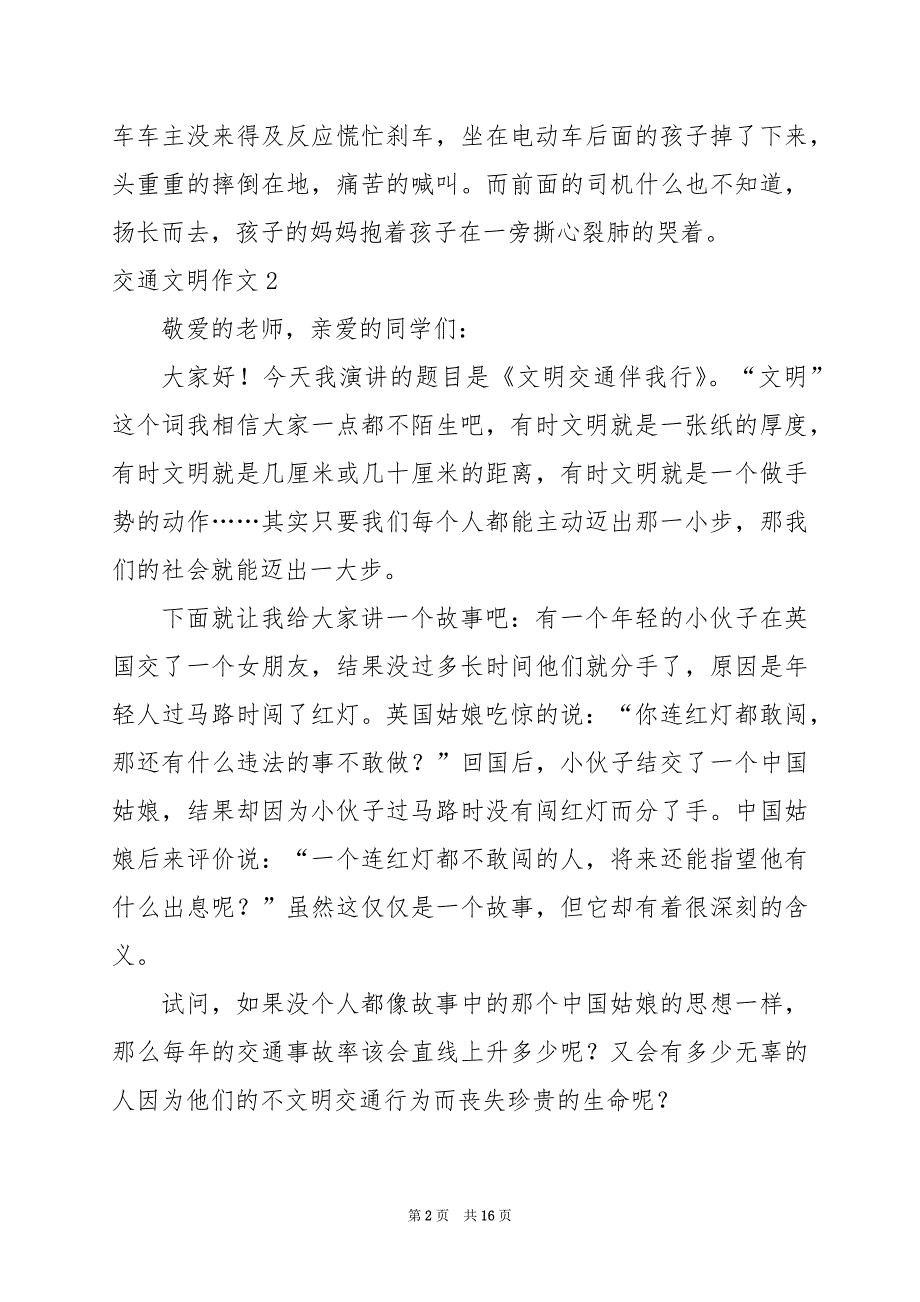 车车主没来得及反应慌忙刹车，坐在电动车后面的孩子掉了下来，
头重重的摔倒在地，痛苦的喊叫。而前面的司机什么也不知道，
扬长而去，孩子的妈妈抱着孩子在一旁撕心裂肺的哭着。
交通文明作文 2
敬爱的老师，亲爱的同学们：
大家好！今天我演讲的题目是《文明交通伴我行》。“文明”
这个词我相信大家一点都不陌生吧，有时文明就是一张纸的厚度，
有时文明就是几厘米或几十厘米的距离，有时文明就是一个做手
势的动作……其实只要我们每个人都能主动迈出那一小步，那我
们的社会就能迈出一大步。
下面就让我给大家讲一个故事吧：有一个年轻的小伙子在英
国交了一个女朋友，结果没过多长时间他们就分手了，原因是年
轻人过马路时闯了红灯。英国姑娘吃惊的说：“你连红灯都敢闯，
那还有什么违法的事不敢做？”回国后，小伙子结交了一个中国
姑娘，结果却因为小伙子过马路时没有闯红灯而分了手。中国姑
娘后来评价说：“一个连红灯都不敢闯的人，将来还能指望他有
什么出息呢？”虽然这仅仅是一个故事，但它却有着很深刻的含
义。
试问，如果没个人都像故事中的那个中国姑娘的思想一样，
那么每年的交通事故率该会直线上升多少呢？又会有多少无辜的
人因为他们的不文明交通行为而丧失珍贵的生命呢？
第 2 页 共 16 页